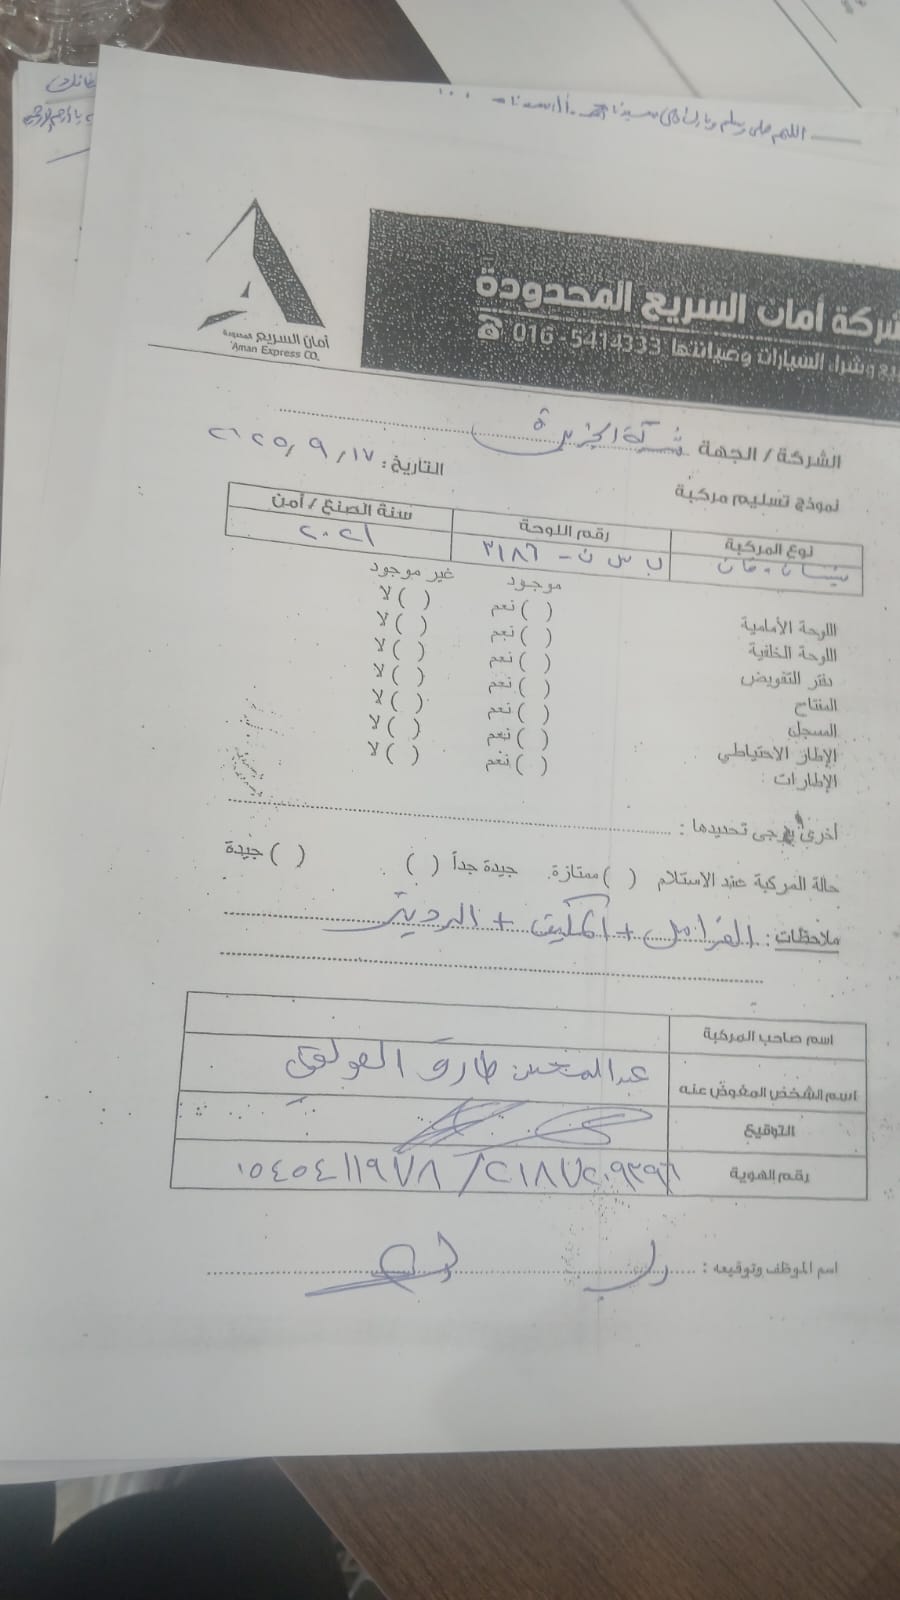 اللهم صلي وسلم وبارك على سيدنا محمد
شركة أمان السريع المحدودة
بيع وشراء السيارات وصيانتها 016-5414333
أمان السريع المحدودة
'Aman Express CO.
الشركة / الجهة شركة الجزيرة
التاريخ: ٢٠٢٥/٩/١٧
نموذج تسليم مركبة
نوع المركبة رقم اللوحة سنة الصنع / أمن
نيسان - فان ب س ن - ٣١٨٦ ٢٠٢١
موجود غير موجود
اللوحة الأمامية ( ) نعم ( ) لا
اللوحة الخلفية ( ) نعم ( ) لا
دفتر التفويض ( ) نعم ( ) لا
المفتاح ( ) نعم ( ) لا
المسجل ( ) نعم ( ) لا
الإطار الاحتياطي ( ) نعم ( ) لا
الإطارات : ( ) نعم ( ) لا
أخرى يرجى تحديدها :
حالة المركبة عند الاستلام ( ) ممتازة. جيدة جداً ( ) ( ) جيدة
ملاحظات : الفرامل + المكيف + الرديتر
اسم صاحب المركبة
اسم الشخص المفوض عنه عبدالمحسن طارق
التوقيع
رقم الهوية
اسم الموظف وتوقيعه :